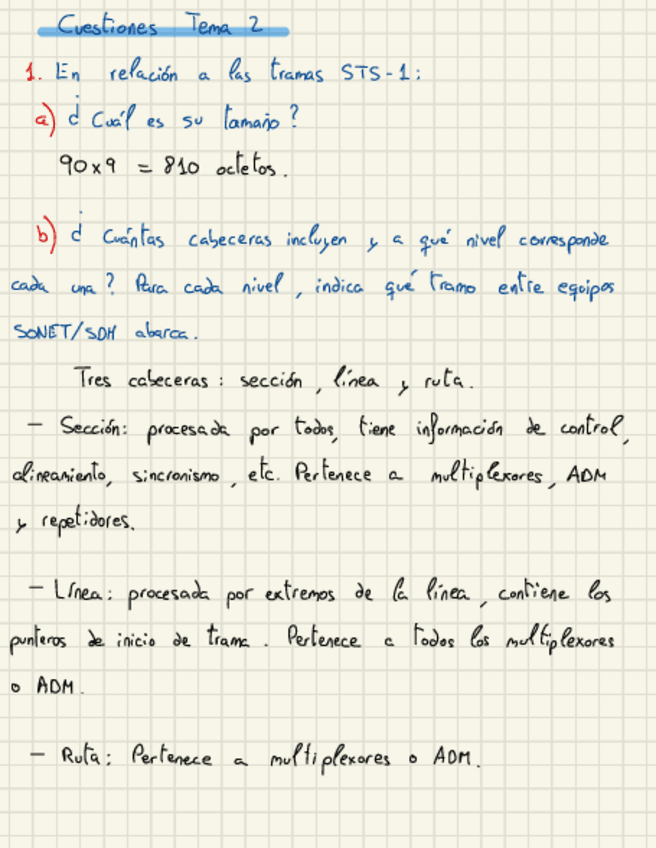 Cuestiones Tema 2
1. En relación a las tramas STS-1:
a) ¿Cuál es su tamaño?
90x9 = 810 octetos.
b) ¿Cuántas cabeceras incluyen y a qué nivel corresponde
cada una? Para cada nivel, indica qué tramo entre equipos
SONET/SDH abarca.
Tres cabeceras: sección, línea y ruta.
- Sección: procesada por todos, tiene información de control,
alineamiento, sincronismo, etc. Pertenece a multiplexores, ADM
y repetidores.
- Línea: procesada por extremos de la línea, contiene los
punteros de inicio de trama. Pertenece a todos los multiplexores
o ADM.
- Ruta: Pertenece a multiplexores o ADM.